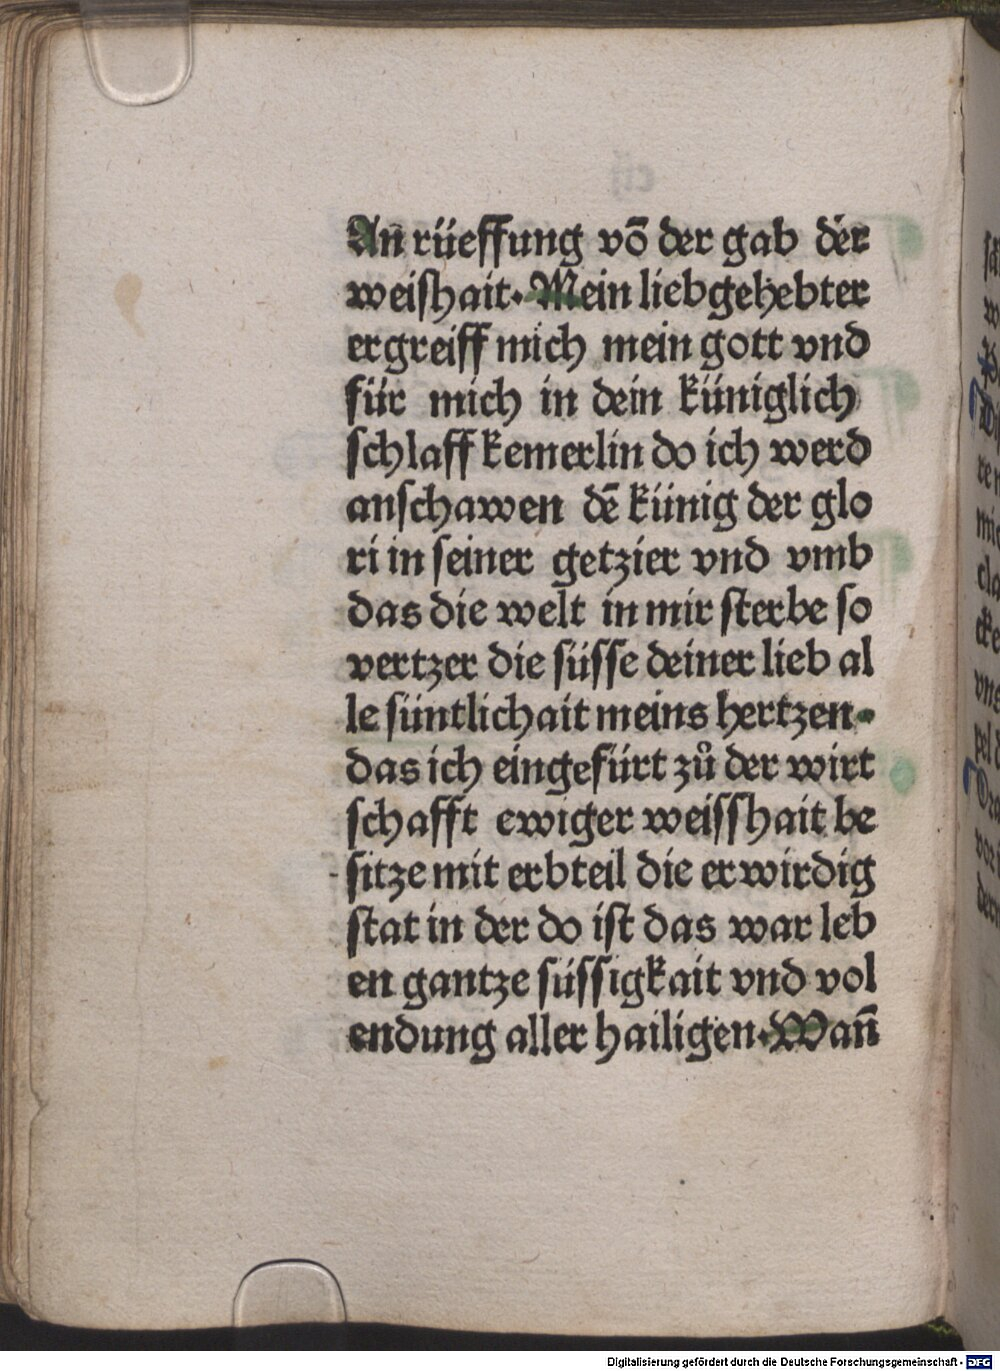 An̄ rüeffung võ der gab der
weishait. Mein lieb gehebter
ergreiff mich mein gott vnd
für mich in dein küniglich
schlaff kemerlin do ich werd
anschawen dē künig der glo
ri in seiner getzier vnd vmb
das die welt in mir sterbe so
vertzer die süsse deiner lieb al
le süntlichait meins hertzen.
das ich eingefürt zů der wirt
schafft ewiger weisshait be
sitze mit erbteil die erwirdig
stat in der do ist das war leb
en gantze süssigkait vnd vol
endung aller hailigen. Wan̄
Digitalisierung gefördert durch die Deutsche Forschungsgemeinschaft - DFG